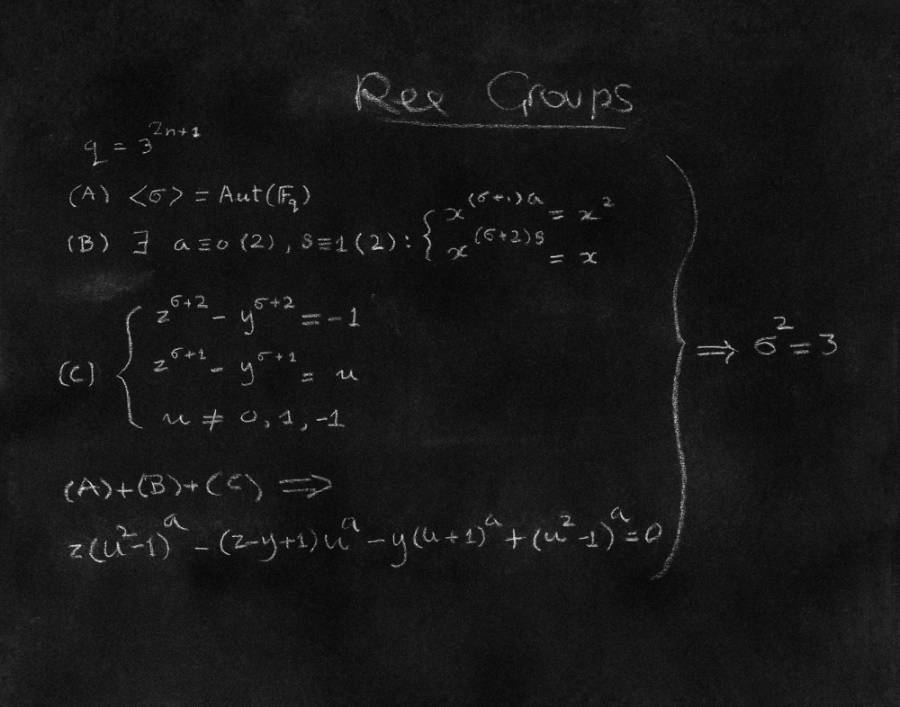 Ree Groups
q = 3^{2n+1}
(A) <σ> = Aut(𝔽_q)
(B) ∃ a≡0 (2), s≡1 (2) : { x^{(σ+1)a} = x^2
x^{(σ+2)s} = x
(C) { z^{σ+2} - y^{σ+2} = -1
z^{σ+1} - y^{σ+1} = u
u ≠ 0, 1, -1
} ⇒ σ^2 = 3
(A)+(B)+(C) ⇒
z(u^2-1)^a - (z-y+1)u^a - y(u+1)^a + (u^2-1)^a = 0